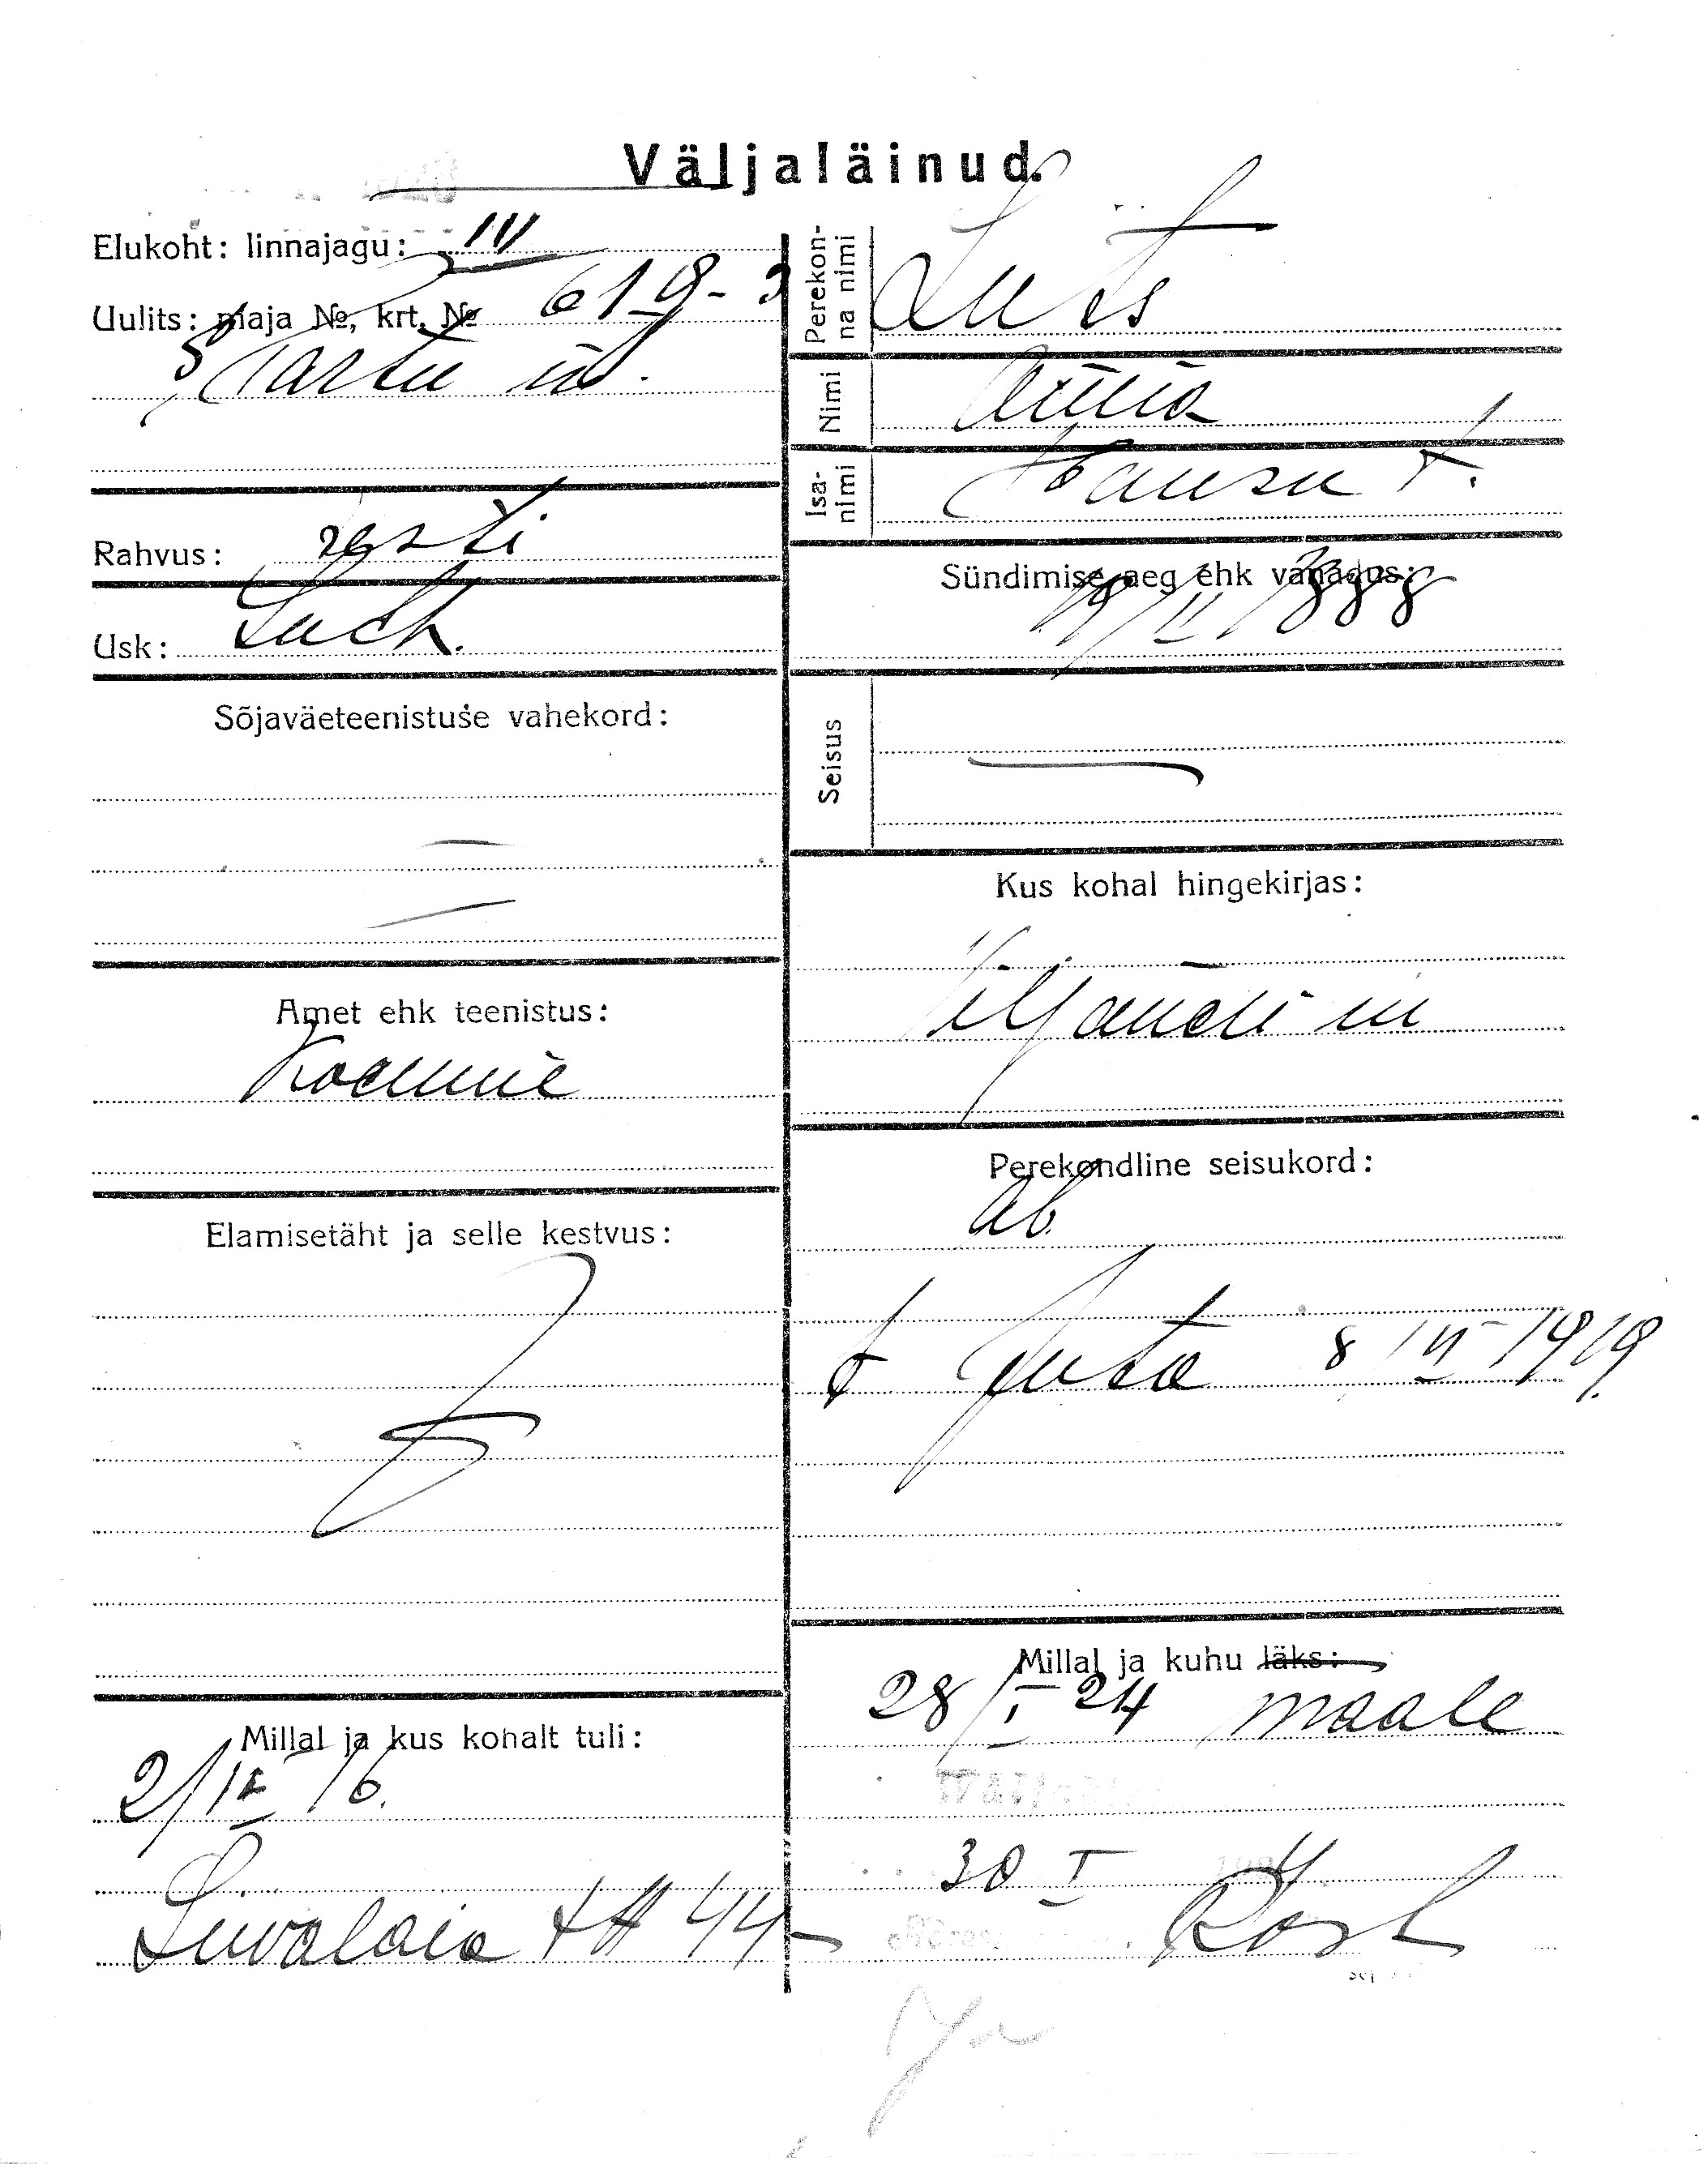 Väljaläinud.
Elukoht: linnajagu: IV
Uulits: maja №, krt. № 61 9-3
S Tartu m.
Rahvus: eesti
Usk: Luth.
Sõjaväeteenistuse vahekord:
Amet ehk teenistus:
Elamisetäht ja selle kestvus:
Millal ja kus kohalt tuli:
2/IX 16.
44
Perekonna nimi Luts
Nimi
Isanimi Hansu t.
Sündimise aeg ehk vanadus:
19/II 1888
Seisus
Kus kohal hingekirjas:
Viljandi m
Perekondline seisukord:
Ab.
t Juta 8/VI 1919
Millal ja kuhu läks:
28/I 24 maale
30 I